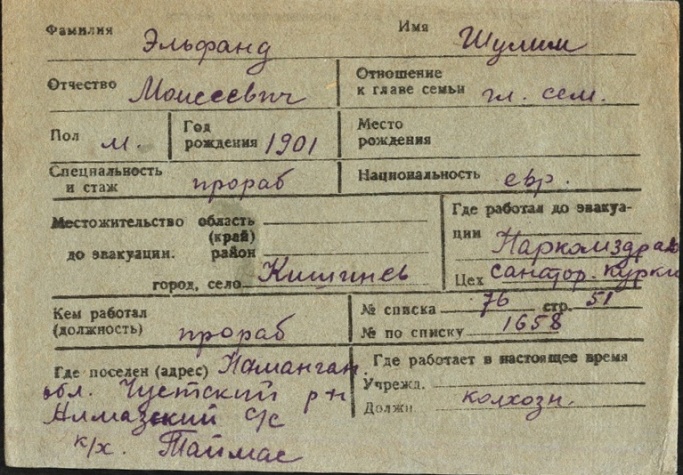 Фамилия Эльфанд Имя Шулим
Отчество Моисеевич Отношение к главе семьи гл. сем.
Пол м. Год рождения 1901 Место рождения
Специальность и стаж прораб Национальность евр.
Местожительство область (край)
до эвакуации. район
город, село Кишинев
Где работал до эвакуации Наркомздрав
Цех санатор. Курки
Кем работал (должность) прораб
№ списка 76 стр. 51
№ по списку 1658
Где поселен (адрес) Наманган.
обл. Чустский р-н
Алмазский с/с
к/х. Таймас
Где работает в настоящее время
Учрежд.
Должн. колхозн.